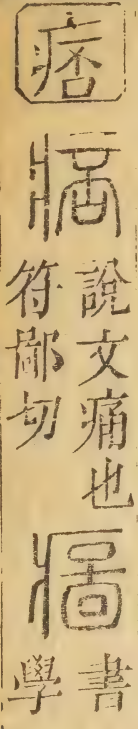 痞
說文痛也
符鄙切
書
學